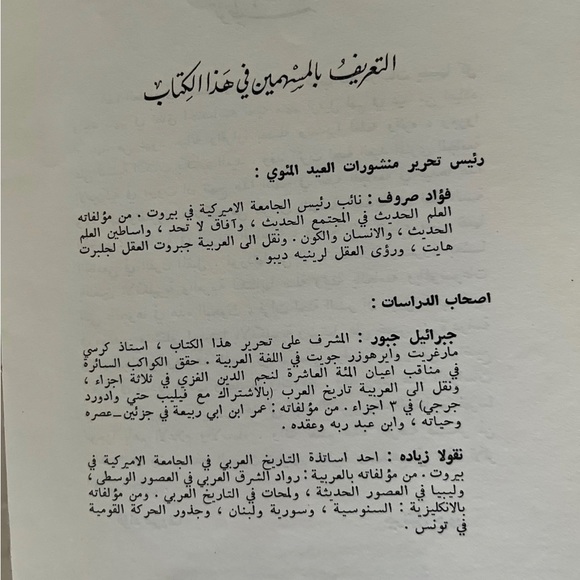 التعريف بالمسهمين في هذا الكتاب
رئيس تحرير منشورات العيد المئوي :
فؤاد صروف : نائب رئيس الجامعة الاميركية في بيروت . من مؤلفاته
العلم الحديث في المجتمع الحديث ، وآفاق لا تحد ، واساطين العلم
الحديث ، والانسان والكون . ونقل الى العربية جبروت العقل لجلبرت
هايت ، ورؤى العقل لرينيه ديبو .
اصحاب الدراسات :
جبرائيل جبور : المشرف على تحرير هذا الكتاب ، استاذ كرسي
مارغريت وايرهوزر جويت في اللغة العربية . حقق الكواكب السائرة
في مناقب اعيان المئة العاشرة لنجم الدين الغزي في ثلاثة اجزاء ،
ونقل الى العربية تاريخ العرب (بالاشتراك مع فيليب حتي وادورد
جرجي) في ٣ اجزاء . من مؤلفاته : عمر ابن ابي ربيعة في جزئين_عصره
وحياته ، وابن عبد ربه وعقده .
نقولا زياده : احد اساتذة التاريخ العربي في الجامعة الاميركية في
بيروت . من مؤلفاته بالعربية : رواد الشرق العربي في العصور الوسطى ،
وليبيا في العصور الحديثة ، ولمحات في التاريخ العربي . ومن مؤلفاته
بالانكليزية : السنوسية ، وسورية ولبنان ، وجذور الحركة القومية
في تونس .